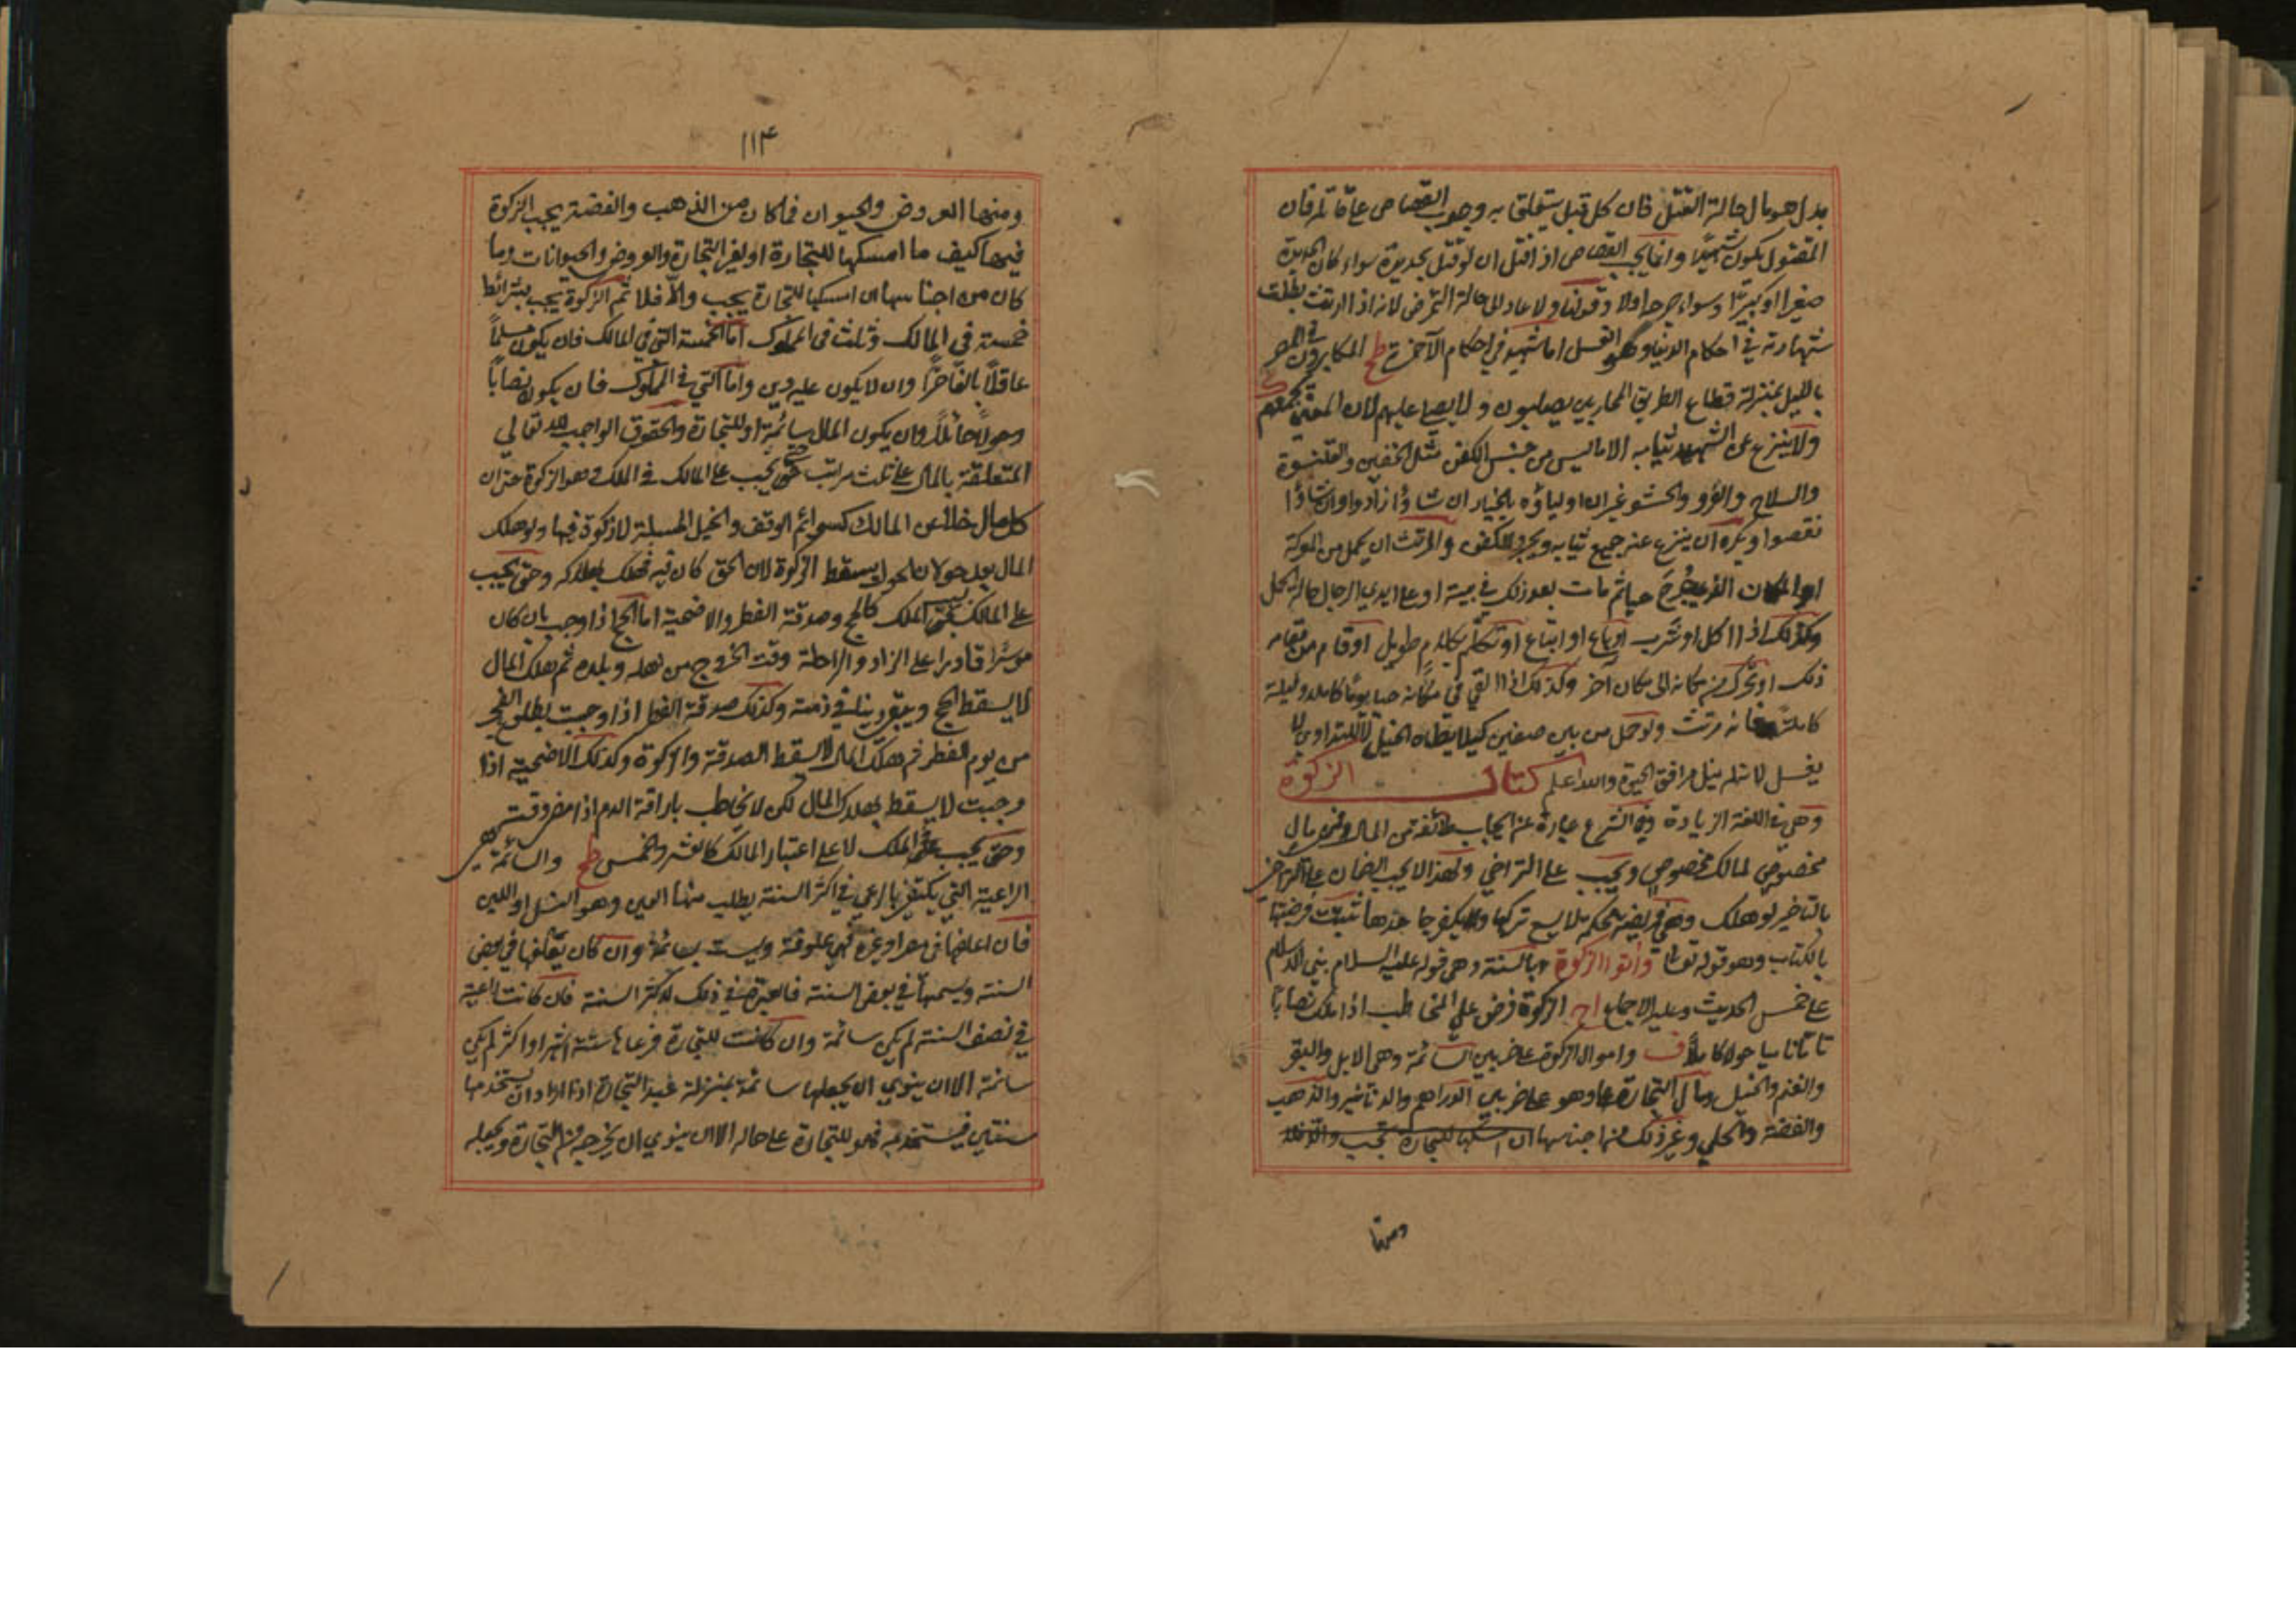 بدل هو مال حالة القتل فان كل قتيل يتعلق به وجوب القصاص على قاتله فان
المقتول يكون شهيدًا وانما يجب القصاص اذا قتل ان لو قتل بحديدة سواء كان الحديدة
صغيرا او كبيرًا وسواء جرح اولا وقولنا ولا عاد الى حالة التمرض لانه اذا ارتث بطلت
شهادته في احكام الدنيا وهو الغسل اما شهيد في احكام الآخرة طح المكابرون في المصر
بالليل بمنزلة قطاع الطريق المحاربين يصلبون ولا يصلى عليهم لان المعنى يجمعهم
ولا ينزع عن الشهيد ثيابه الا ما ليس من جنس الكفن مثل الخفين والقلنسوة
والسلاح والفرو والحشو غير ان اولياؤه بالخيار ان شاؤا زادوا وان شاؤا
نقصوا ويكره ان ينزع عنه جميع ثيابه ويجرد للكفن والمرتث ان يحمل من المعركة
او المكان الذي جُرح حيا ثم مات بعد ذلك في بيته او على ايدي الرجال حالة الحمل
وكذلك اذا اكل او شرب او باع او ابتاع او تكلم بكلام طويل او قام من مقامه
ذلك او تحرك من مكانه الى مكان آخر وكذلك اذا القي في مكانه حيا يومًا كاملا وليلة
كاملة فانه مرتث ولو حمل من بين صفين كيلا يطاه الخيل لا للتداوي لا
يغسل لانه لم ينل مرافق الحيوة والله اعلم كتاب الزكوة
وهي في اللغة الزيادة وفي الشرع عبارة عن ايجاب طائفة من المال في مال
مخصوص لمالك مخصوص ويجب على التراخي ولهذا لا يجب الضمان على التراخي
بالتاخير لو هلك وهي فريضة محكمة لا يسع تركها ويكفر جاحدها ثبتت فرضيتها
بالكتاب وهو قوله تعالى وآتوا الزكوة وبالسنة وهي قوله عليه السلام بني الاسلام
على خمس الحديث وعليه الاجماع اج الزكوة فرض على المخاطب اذا ملك نصابًا
تاما ناميا حولا كاملاً ف واموال الزكوة على ضربين السائمة وهي الابل والبقر
والغنم والخيل ومال التجارة وهو على ضربين الدراهم والدنانير والذهب
والفضة والحلي وغير ذلك من اجناسها ان امسكها للتجارة تجب والا فلا
ومنها
۱۱۴
ومنها العروض والحيوان فما كان من الذهب والفضة يجب الزكوة
فيها كيف ما امسكها للتجارة او لغير التجارة والعروض والحيوانات وما
كان من اجناسها ان امسكها للتجارة يجب والا فلا ثم الزكوة يجب بشرائط
خمسة في المالك وثلث في المملوك اما الخمسة التي في المالك فان يكون مسلماً
عاقلاً بالغًا حرًا وان لا يكون عليه دين واما التي في المملوك فان يكون نصابًا
وحولاً حائلاً وان يكون المال سائمة او للتجارة والحقوق الواجب لله تعالى
المتعلقة بالمال على ثلث مراتب حق يجب على المالك في الملك وهو الزكوة حتى ان
كل مال خلا عن المالك كسوائم الوقف والخيل المسبلة لا زكوة فيها ولو هلك
المال بعد حولان الحول يسقط الزكوة لان الحق كان فيه فهلك بهلاكه وحق يجب
على المالك بسبب الملك كالحج وصدقة الفطر والاضحية اما الحج اذا وجب بان كان
موسرًا قادرا على الزاد والراحلة وقت الخروج من اهله وبلده ثم هلك المال
لا يسقط الحج ويبقى دينا في ذمته وكذلك صدقة الفطر اذا وجبت بطلوع الفجر
من يوم الفطر ثم هلك المال لا يسقط الصدقة والزكوة وكذلك الاضحية اذا
وجبت لا يسقط بهلاك المال لكن لا يخاطب باراقة الدم اذا مضى وقت
وحق يجب على الملك لا على اعتبار المالك كالعشر والخمس طح والسائمة هي
الراعية التي يكتفي بالرعي في اكثر السنة يطلب منها العين وهو النسل او اللبن
فان اعلفها في مصر او غيره فهي علوفة وليست بسائمة وان كان يعلفها في بعض
السنة ويسيمها في بعض السنة فالعبرة في ذلك لاكثر السنة فان كانت راعية
في نصف السنة لم يكن سائمة وان كانت للتجارة فرعاها ستة اشهر او اكثر لم يكن
سائمة الا ان ينوي ان يجعلها سائمة بمنزلة عبد التجارة اذا اراد ان يستخدمها
سنتين فيستخدمه فهو للتجارة على حاله الا ان ينوي ان يخرجه من التجارة ويجعله